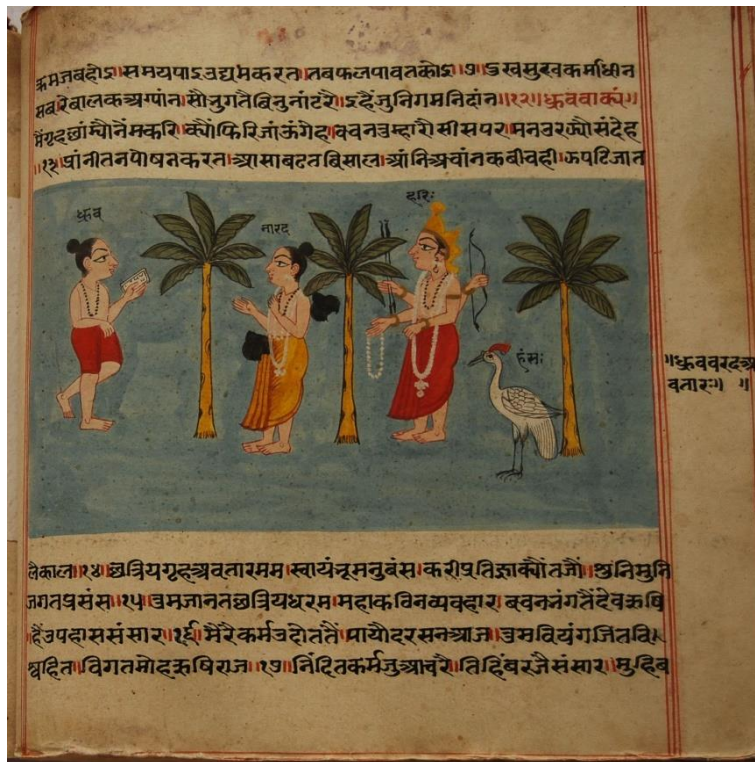 क्रमजबहोऽ।समयपाऽउद्यमकरत।तबफलपावतकोऽ॥९॥दुखसुखकर्माधीन
मबरेबालकअग्यांन।सौनुगतैबिनुनांटरौ।ऽहैंजुनिगमनिदांन॥१२॥ध्रुववाक्यं॥
मैंगृहछांम्यौनेंमकरि।क्यौंफिरिजांऊंगेह।बचनउम्हारौसीसपर।मनउरझ्यौसंदेह
॥१३॥प्रांनीतनपोषनकरत।आसाबढतबिसाल।आंनिअचांनकबीचही।ऊपटिजात
ध्रुव
नारद
हरिः
हंसः
॥ध्रुववरदअ
वतारः॥ ॥
लेकाल॥१४॥छत्रियगृहअवतारमम।स्वायंभूमनुबंस।करीप्रतिज्ञाक्यौंतजौं।सुनिमुनि
जगतप्रसंस॥१५॥उमजानतछत्रियधरम।महाकविनव्यवहार।बचनभंगतैंदेवऋषि
।हैंउपहाससंसार॥१६॥मेंरैकर्मउदोततें।पायौदरसनआज।उमबियंगजितवि।
श्वहित।विगतमोहऋषिराज॥१७॥निंदितकर्मजुआचरै।तिहिंबरजैसंसार।मुहिब